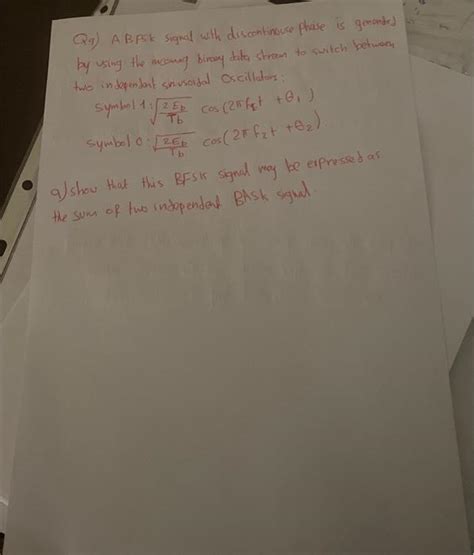 Q9) A BFSK signal with discontinouse phase is generated
by using the incoming binary data stream to switch between
two independent sinusoidal Oscillators:
Symbol 1: √(2E_b/T_b) cos(2πf₁t + θ₁)
Symbol 0: √(2E_b/T_b) cos(2πf₂t + θ₂)
a) show that this BFSK signal may be expressed as
the sum of two independent BASK signal.